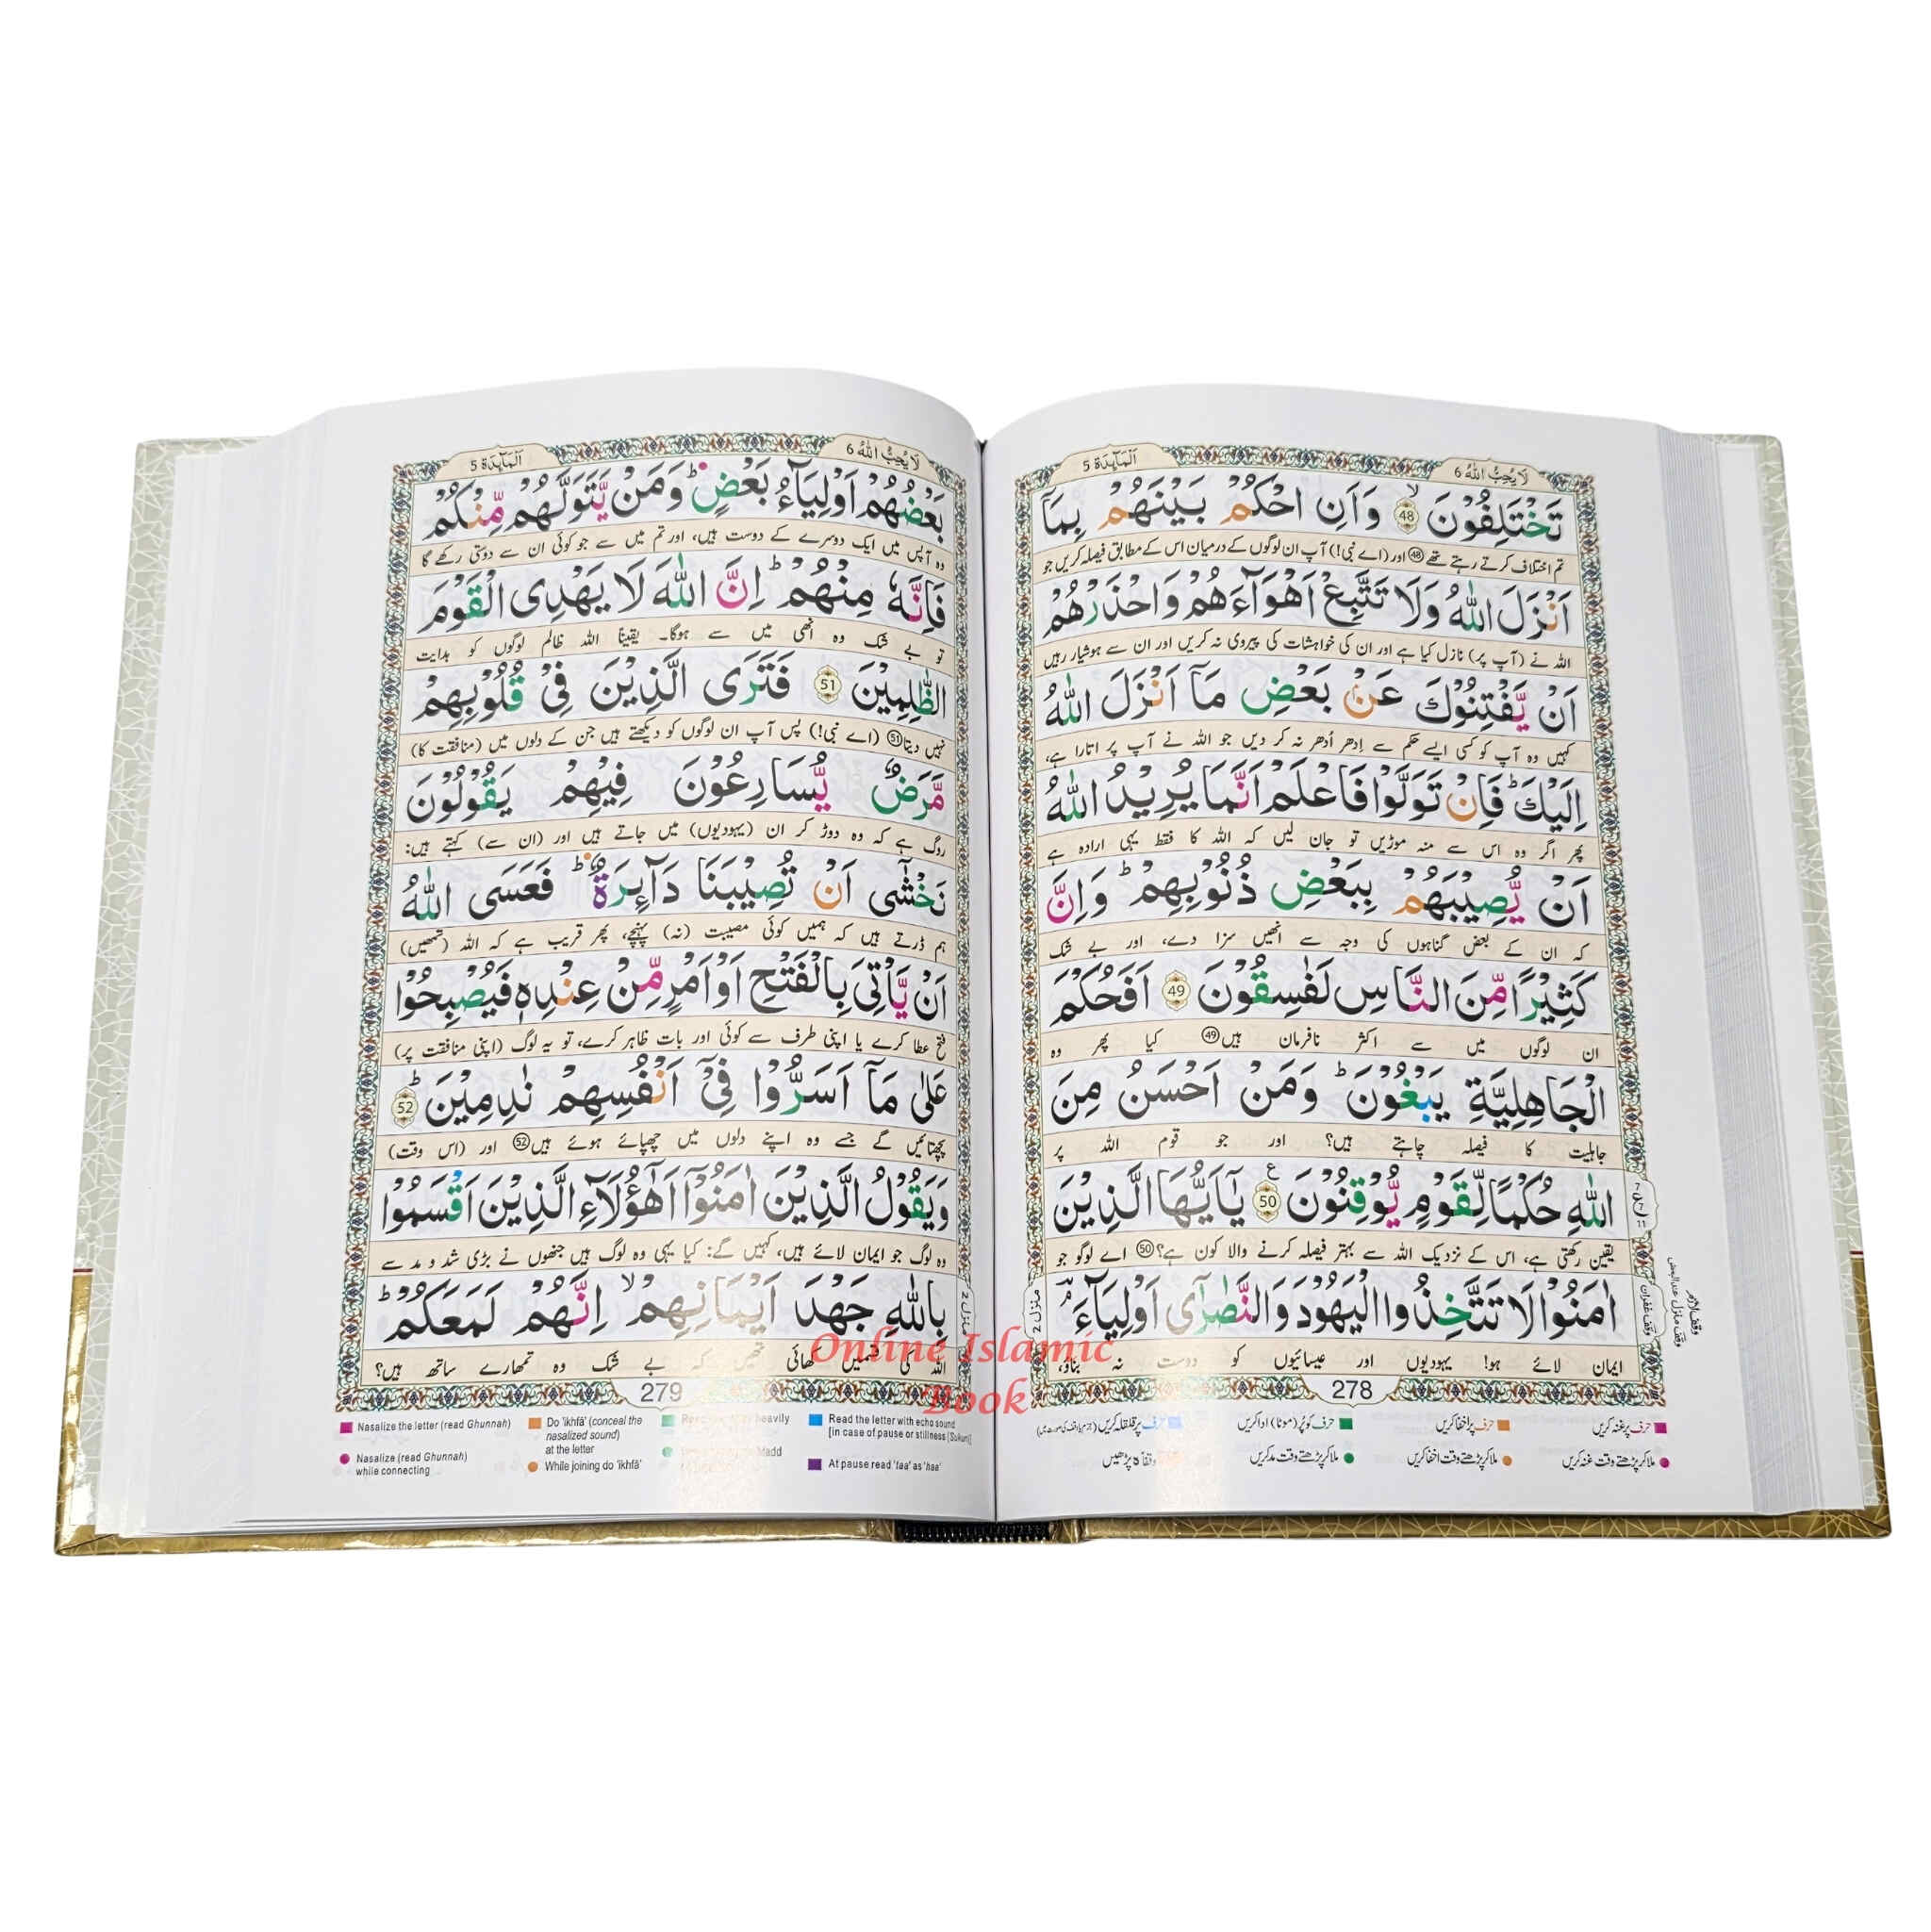 لَا يُحِبُّ اللّٰهُ 6
اَلْمَآئِدَة 5
تَخْتَلِفُوْنَ 48 ۙ وَاَنِ احْكُمْ بَيْنَهُمْ بِمَآ
تم اختلاف کرتے رہتے تھے 48 اور (اے نبی!) آپ ان لوگوں کے درمیان اس کے مطابق فیصلہ کریں جو
اَنْزَلَ اللّٰهُ وَلَا تَتَّبِعْ اَهْوَآءَهُمْ وَاحْذَرْهُمْ
اللہ نے (آپ پر) نازل کیا ہے اور ان کی خواہشات کی پیروی نہ کریں اور ان سے ہوشیار رہیں
اَنْ يَّفْتِنُوْكَ عَنْۢ بَعْضِ مَآ اَنْزَلَ اللّٰهُ
کہیں وہ آپ کو کسی ایسے حکم سے اِدھر اُدھر نہ کر دیں جو اللہ نے آپ پر اتارا ہے،
اِلَيْكَ ؕ فَاِنْ تَوَلَّوْا فَاعْلَمْ اَنَّمَا يُرِيْدُ اللّٰهُ
پھر اگر وہ اس سے منہ موڑیں تو جان لیں کہ اللہ کا فقط یہی ارادہ ہے
اَنْ يُّصِيْبَهُمْ بِبَعْضِ ذُنُوْبِهِمْ ؕ وَاِنَّ
کہ ان کے بعض گناہوں کی وجہ سے انھیں سزا دے، اور بے شک
كَثِيْرًا مِّنَ النَّاسِ لَفٰسِقُوْنَ 49 اَفَحُكْمَ
ان لوگوں میں سے اکثر نافرمان ہیں 49 کیا پھر وہ
الْجَاهِلِيَّةِ يَبْغُوْنَ ؕ وَمَنْ اَحْسَنُ مِنَ
جاہلیت کا فیصلہ چاہتے ہیں؟ اور جو قوم اللہ پر
اللّٰهِ حُكْمًا لِّقَوْمٍ يُّوْقِنُوْنَ 50 ع يٰٓاَيُّهَا الَّذِيْنَ
یقین رکھتی ہے، اس کے نزدیک اللہ سے بہتر فیصلہ کرنے والا کون ہے؟ 50 اے لوگو جو
اٰمَنُوْا لَا تَتَّخِذُوا الْيَهُوْدَ وَالنَّصٰرٰٓى اَوْلِيَآءَ ۘ
ایمان لائے ہو! یہودیوں اور عیسائیوں کو دوست نہ بناؤ،
وقف لازم
وقف منزل عند البعض
وقف غفران
منزل 2
278
حرف پر غنہ کریں
حرف پر اخفا کریں
حرف کو پُر (موٹا) ادا کریں
حرف پر قلقلہ کریں
ملا کر پڑھتے وقت غنہ کریں
ملا کر پڑھتے وقت اخفا کریں
ملا کر پڑھتے وقت مد کریں
وقفاً ہ پڑھیں
لَا يُحِبُّ اللّٰهُ 6
اَلْمَآئِدَة 5
بَعْضُهُمْ اَوْلِيَآءُ بَعْضٍ ؕ وَمَنْ يَّتَوَلَّهُمْ مِّنْكُمْ
وہ آپس میں ایک دوسرے کے دوست ہیں، اور تم میں سے جو کوئی ان سے دوستی رکھے گا
فَاِنَّهٗ مِنْهُمْ ؕ اِنَّ اللّٰهَ لَا يَهْدِى الْقَوْمَ
تو بے شک وہ انھی میں سے ہوگا۔ یقیناً اللہ ظالم لوگوں کو ہدایت
الظّٰلِمِيْنَ 51 فَتَرَى الَّذِيْنَ فِىْ قُلُوْبِهِمْ
نہیں دیتا 51 (اے نبی!) پس آپ ان لوگوں کو دیکھتے ہیں جن کے دلوں میں (منافقت کا)
مَّرَضٌ يُّسَارِعُوْنَ فِيْهِمْ يَقُوْلُوْنَ
روگ ہے کہ وہ دوڑ کر ان (یہودیوں) میں جاتے ہیں اور (ان سے) کہتے ہیں:
نَخْشٰٓى اَنْ تُصِيْبَنَا دَآئِرَةٌ ؕ فَعَسَى اللّٰهُ
ہم ڈرتے ہیں کہ ہمیں کوئی مصیبت (نہ) پہنچے، پھر قریب ہے کہ اللہ (تمھیں)
اَنْ يَّاْتِىَ بِالْفَتْحِ اَوْ اَمْرٍ مِّنْ عِنْدِهٖ فَيُصْبِحُوْا
فتح عطا کرے یا اپنی طرف سے کوئی اور بات ظاہر کرے، تو یہ لوگ (اپنی منافقت پر)
عَلٰى مَآ اَسَرُّوْا فِىْٓ اَنْفُسِهِمْ نٰدِمِيْنَ ؕ 52
پچھتائیں گے جسے وہ اپنے دلوں میں چھپائے ہوئے ہیں 52 اور (اس وقت)
وَيَقُوْلُ الَّذِيْنَ اٰمَنُوْٓا اَهٰٓؤُلَآءِ الَّذِيْنَ اَقْسَمُوْا
وہ لوگ جو ایمان لائے ہیں، کہیں گے: کیا یہی وہ لوگ ہیں جنھوں نے بڑی شد و مد سے
بِاللّٰهِ جَهْدَ اَيْمَانِهِمْ ۙ اِنَّهُمْ لَمَعَكُمْ ؕ
اللہ کی قسمیں کھائی تھیں کہ بے شک وہ تمھارے ساتھ ہیں؟
منزل 2
279
Nasalize the letter (read Ghunnah)
Do 'ikhfā' (conceal the nasalized sound) at the letter
heavily
Read the letter with echo sound
[in case of pause or stillness (Sukun)]
Nasalize (read Ghunnah)
while connecting
While joining do 'ikhfā'
Madd
At pause read 'taa' as 'haa'
Online Islamic
Book